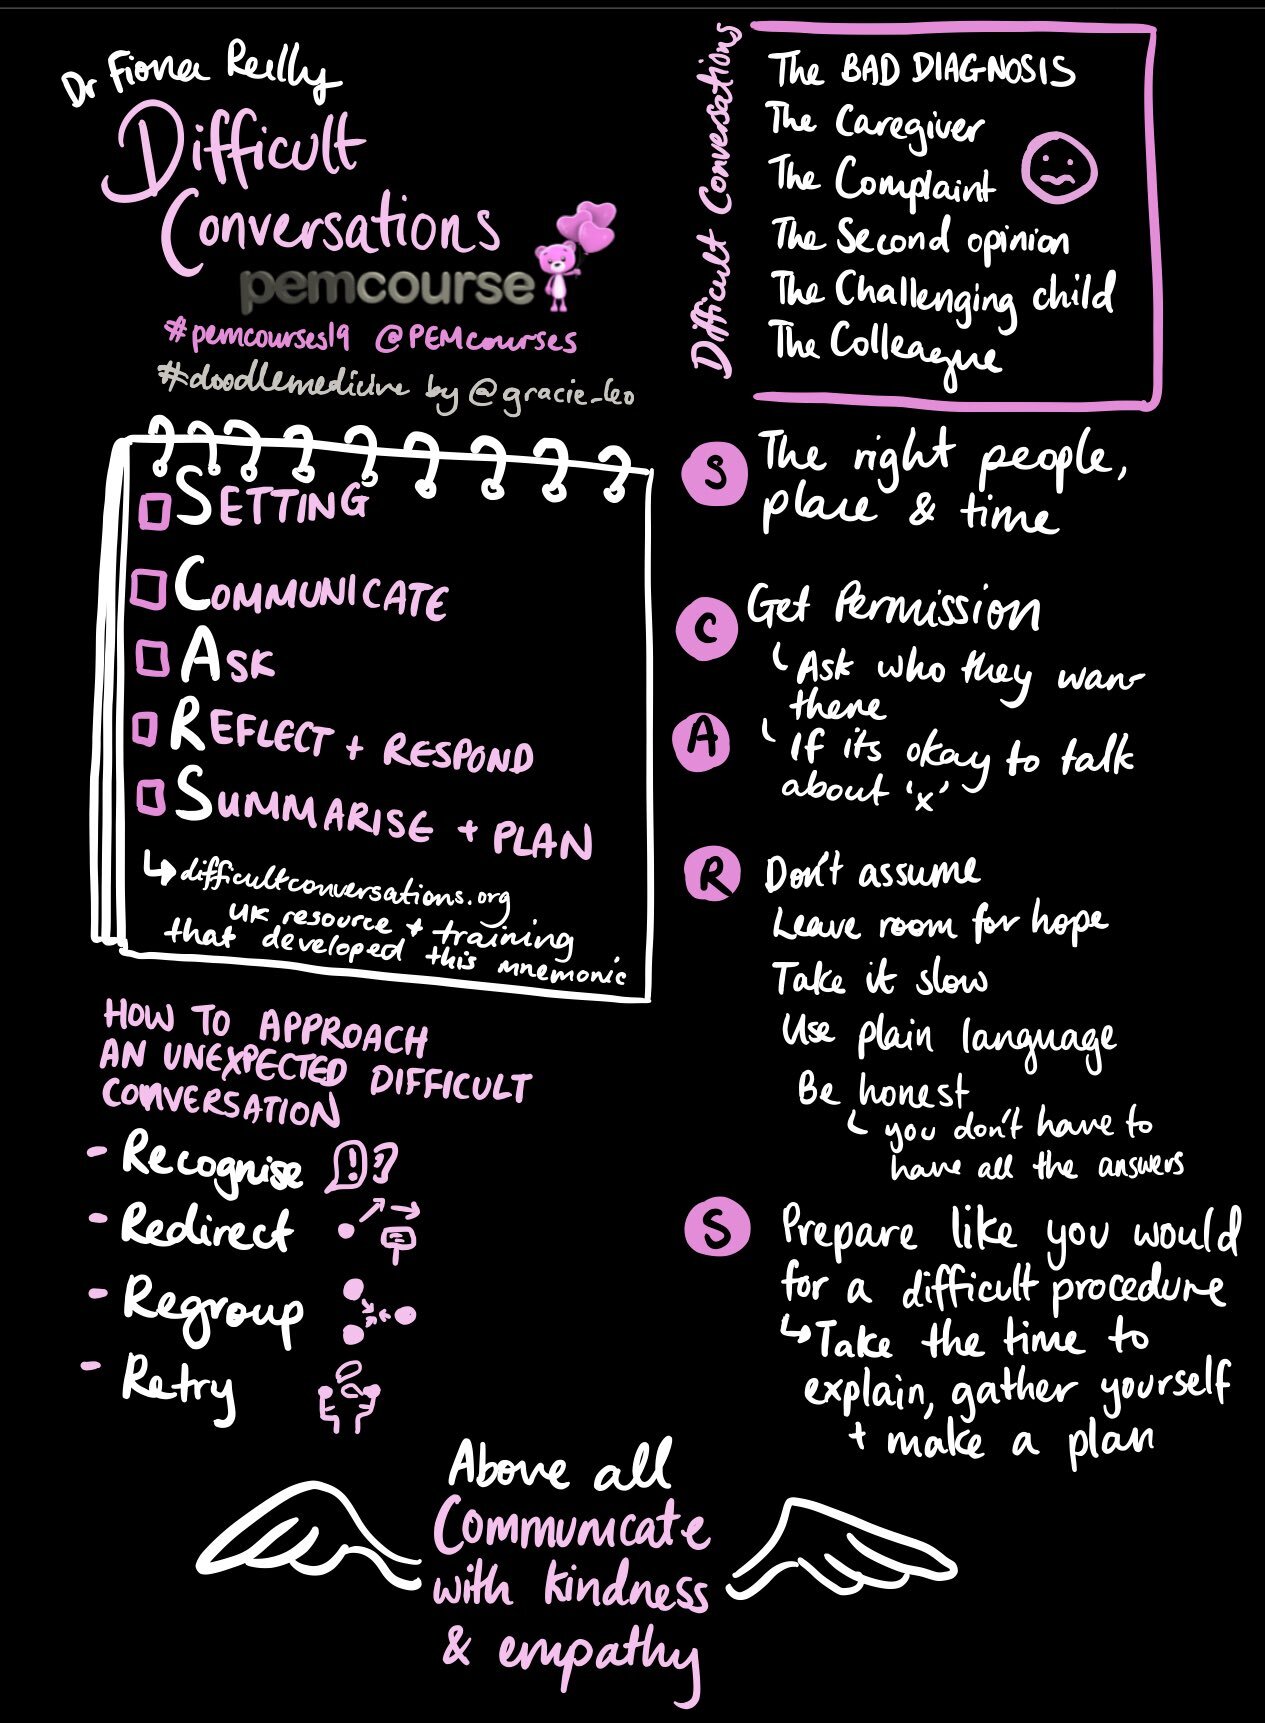 Dr Fiona Reilly
Difficult
Conversations
pemcourse
#pemcourses19 @PEMcourses
#doodlemedicine by @gracie_leo
Difficult Conversations
The BAD DIAGNOSIS
The Caregiver
The Complaint
The Second opinion
The Challenging child
The Colleague
SETTING
COMMUNICATE
ASK
REFLECT + RESPOND
SUMMARISE + PLAN
difficultconversations.org
UK resource + training
that developed this mnemonic
S
The right people,
place & time
C
Get Permission
Ask who they want
there
A
If its okay to talk
about 'x'
R
Don't assume
Leave room for hope
Take it slow
Use plain language
Be honest
you don't have to
have all the answers
S
Prepare like you would
for a difficult procedure
Take the time to
explain, gather yourself
+ make a plan
HOW TO APPROACH
AN UNEXPECTED DIFFICULT
CONVERSATION
- Recognise !?
- Redirect
- Regroup
- Retry
Above all
Communicate
with kindness
& empathy